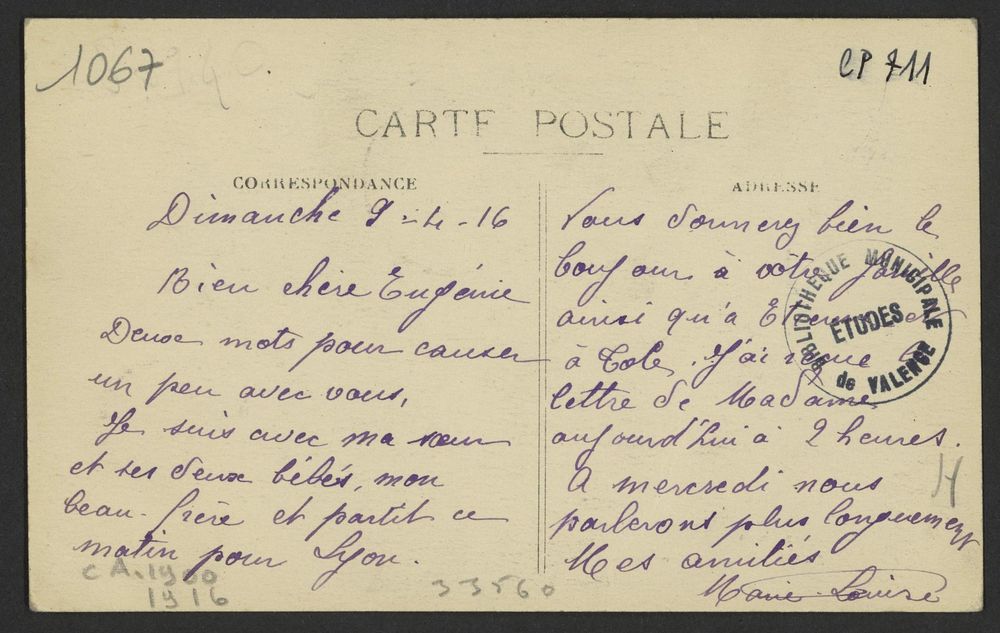 1067
CP 711
CARTE POSTALE
CORRESPONDANCE
Dimanche 9-4-16
Bien chère Eugénie
Deux mots pour causer
un peu avec vous,
Je suis avec ma sœur
et ses deux bébés, mon
beau-frère et partit ce
matin pour Lyon.
ADRESSE
Vous donnerez bien le
bonjour à votre famille
ainsi qu'à
à J'ai
lettre de Madame
aujourd'hui à 2 heures.
A mercredi nous
parlerons plus longuement
Mes amitiés
Marie-Louise
BIBLIOTHEQUE MUNICIPALE
ETUDES
de VALENCE
c A. 1900
1916
33560